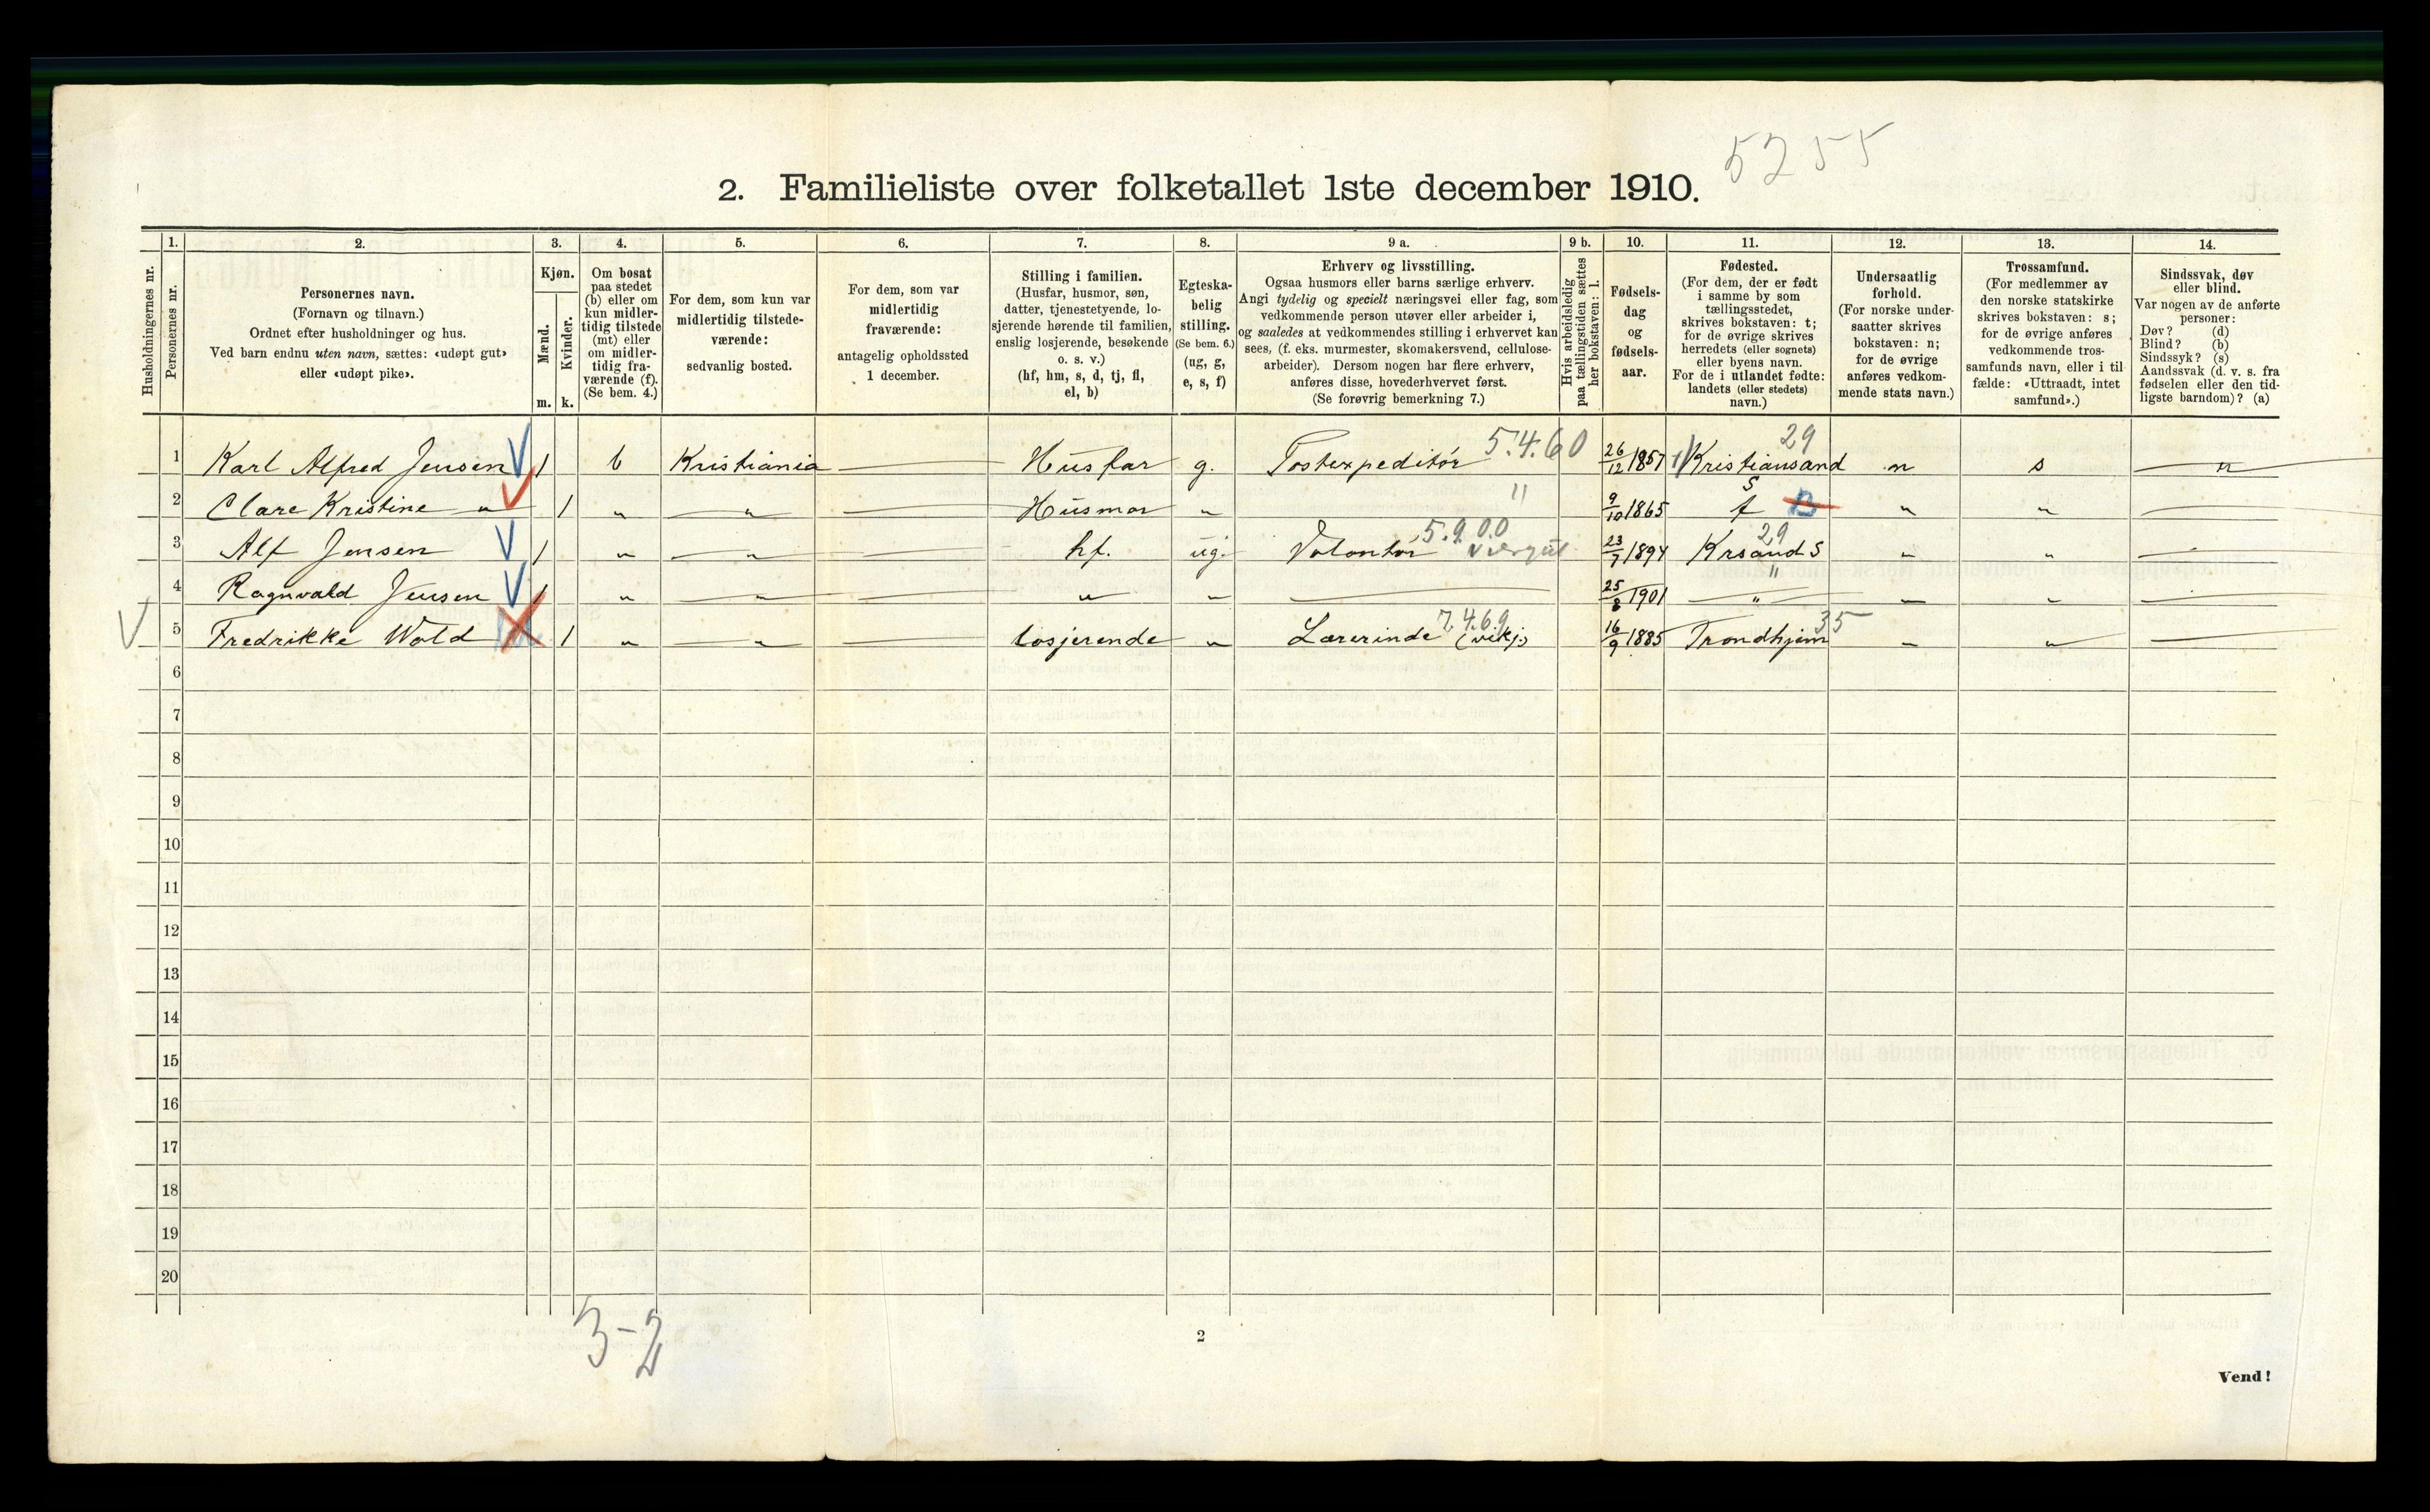 5255
2. Familieliste over folketallet 1ste december 1910.
Husholdningernes nr.
1.
Personernes nr.
2.
Personernes navn.
(Fornavn og tilnavn.)
Ordnet efter husholdninger og hus.
Ved barn endnu uten navn, sættes: «udøpt gut»
eller «udøpt pike».
3.
Kjøn.
Mænd.
Kvinder.
m. k.
4.
Om bosat
paa stedet
(b) eller om
kun midler-
tidig tilstede
(mt) eller
om midler-
tidig fra-
værende (f).
(Se bem. 4.)
5.
For dem, som kun var
midlertidig tilstede-
værende:
sedvanlig bosted.
6.
For dem, som var
midlertidig
fraværende:
antagelig opholdssted
1 december.
7.
Stilling i familien.
(Husfar, husmor, søn,
datter, tjenestetyende, lo-
sjerende hørende til familien,
enslig losjerende, besøkende
o. s. v.)
(hf, hm, s, d, tj, fl,
el, b)
8.
Egteska-
belig
stilling.
(Se bem. 6.)
(ug, g,
e, s, f)
9 a.
Erhverv og livsstilling.
Ogsaa husmors eller barns særlige erhverv.
Angi tydelig og specielt næringsvei eller fag, som
vedkommende person utøver eller arbeider i,
og saaledes at vedkommendes stilling i erhvervet kan
sees, (f. eks. murmester, skomakersvend, cellulose-
arbeider). Dersom nogen har flere erhverv,
anføres disse, hovederhvervet først.
(Se forøvrig bemerkning 7.)
9 b.
Hvis arbeidsledig
paa tællingstiden sættes
her bokstaven: l.
10.
Fødsels-
dag
og
fødsels-
aar.
11.
Fødested.
(For dem, der er født
i samme by som
tællingsstedet,
skrives bokstaven: t;
for de øvrige skrives
herredets (eller sognets)
eller byens navn.
For de i utlandet fødte:
landets (eller stedets)
navn.)
12.
Undersaatlig
forhold.
(For norske under-
saatter skrives
bokstaven: n;
for de øvrige
anføres vedkom-
mende stats navn.)
13.
Trossamfund.
(For medlemmer av
den norske statskirke
skrives bokstaven: s;
for de øvrige anføres
vedkommende tros-
samfunds navn, eller i til-
fælde: «Uttraadt, intet
samfund».)
14.
Sindssvak, døv
eller blind.
Var nogen av de anførte
personer:
Døv? (d)
Blind? (b)
Sindssyk? (s)
Aandssvak (d. v. s. fra
fødselen eller den tid-
ligste barndom)? (a)
5.4.60 29
1 Karl Alfred Jensen 1 b Kristiania — Husfar g. Postexpeditör 26/12 1857 Kristiansand n s — " —
" S
2 Clare Kristine " 1 " " — Husmor " 9/10 1865 t " " —
5.9.00 29
3 Alf Jensen 1 " " — hf. ug. Volontör 23/7 1894 Krsand S " " —
"
4 Ragnvald Jensen 1 " " — " " — 25/8 1901 " " " —
7.4.69 35
5 Fredrikke Wold 1 " " — Losjerende " Lærerinde (vikj.) 16/9 1885 Trondhjem " " —
6
7
8
9
10
11
12
13
14
15
16
17
18
19
20
3-2
2
Vend!